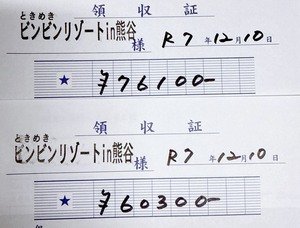 領収証
ときめき
ピンピンリゾートin熊谷
様 R7年12月10日
★ ¥76100-
領収証
ときめき
ピンピンリゾートin熊谷
様 R7年12月10日
★ ¥60300-